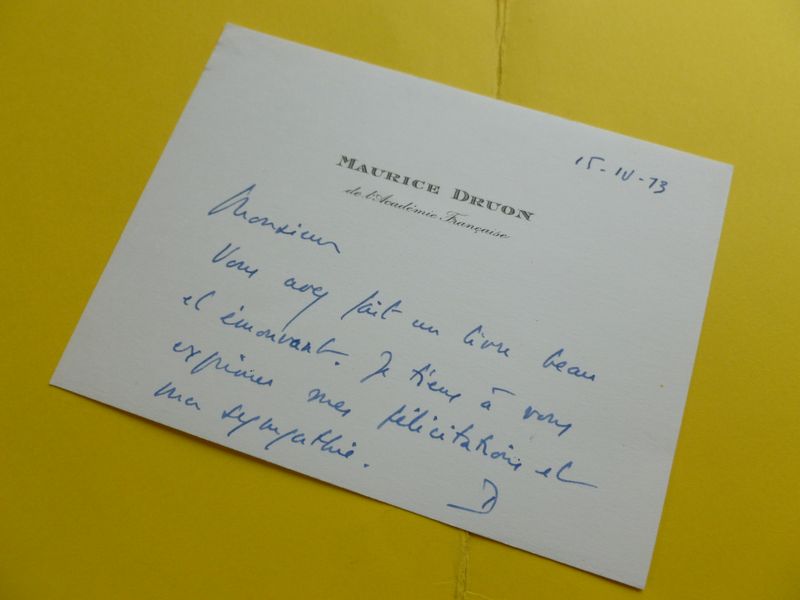 15-IV-73
MAURICE DRUON
de l'Académie Française
Monsieur
Vous avez fait un livre beau
et émouvant. Je tiens à vous
exprimer mes félicitations et
ma sympathie.
D